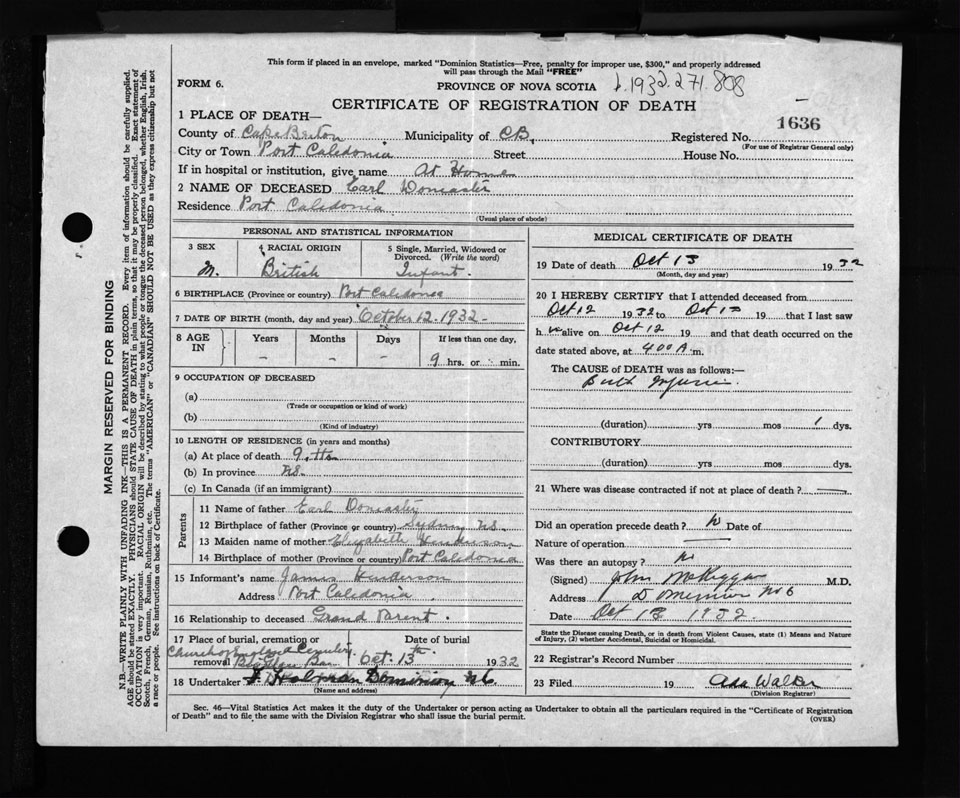 This form if placed in an envelope, marked "Dominion Statistics—Free, penalty for improper use, $300," and properly addressed
will pass through the Mail "FREE"
FORM 6.
PROVINCE OF NOVA SCOTIA
1932.271.808
CERTIFICATE OF REGISTRATION OF DEATH
1636
1 PLACE OF DEATH—
County of Cape Breton Municipality of C.B. Registered No.
(For use of Registrar General only)
City or Town Port Caledonia Street House No.
If in hospital or institution, give name At Home
2 NAME OF DECEASED Earl Doncaster
Residence Port Caledonia
(Usual place of abode)
PERSONAL AND STATISTICAL INFORMATION
3 SEX 4 RACIAL ORIGIN 5 Single, Married, Widowed or Divorced. (Write the word)
M. British Infant.
6 BIRTHPLACE (Province or country) Port Caledonia
7 DATE OF BIRTH (month, day and year) October 12. 1932
8 AGE IN Years Months Days If less than one day,
- - - 9 hrs. or min.
9 OCCUPATION OF DECEASED
(a)
(Trade or occupation or kind of work)
(b)
(Kind of industry)
10 LENGTH OF RESIDENCE (in years and months)
(a) At place of death 9
(b) In province N.S.
(c) In Canada (if an immigrant)
Parents
11 Name of father Earl Doncaster
12 Birthplace of father (Province or country) Sydney N.S.
13 Maiden name of mother Elizabeth Henderson
14 Birthplace of mother (Province or country) Port Caledonia
15 Informant's name James Henderson
Address Port Caledonia
16 Relationship to deceased Grand Parent.
17 Place of burial, cremation or removal Date of burial
Church of England Cemetery
Oct. 13th 1932
18 Undertaker Dominion
(Name and address)
MEDICAL CERTIFICATE OF DEATH
19 Date of death Oct 13 1932
(Month, day and year)
20 I HEREBY CERTIFY that I attended deceased from
Oct 12 1932 to Oct 13 19 that I last saw
h alive on Oct 12 19 and that death occurred on
the date stated above, at 4 00 A m.
The CAUSE of DEATH was as follows:—
Birth Injuries
(duration) yrs mos 1 dys.
CONTRIBUTORY
(duration) yrs mos dys.
21 Where was disease contracted if not at place of death?
Did an operation precede death? No Date of
Nature of operation
Was there an autopsy? No
(Signed) John McKeggan M.D.
Address Dominion No 6
Date Oct 13 1932
State the Disease causing Death, or in death from Violent Causes, state (1) Means and Nature
of Injury, (2) whether Accidental, Suicidal or Homicidal.
22 Registrar's Record Number
23 Filed 19 Ada Walker
(Division Registrar)
Sec. 46—Vital Statistics Act makes it the duty of the Undertaker or person acting as Undertaker to obtain all the particulars required in the "Certificate of Registration
of Death" and to file the same with the Division Registrar who shall issue the burial permit.
(OVER)
MARGIN RESERVED FOR BINDING
N.B.—WRITE PLAINLY WITH UNFADING INK—THIS IS A PERMANENT RECORD. Every item of information should be carefully supplied.
AGE should be stated EXACTLY. PHYSICIANS should STATE CAUSE OF DEATH in plain terms, so that it may be properly classified. Exact statement of
OCCUPATION is very important. RACIAL ORIGIN will be described by stating to what people or tongue the deceased person belonged, whether English, Irish,
Scotch, French, German, Russian, Ruthenian, etc. The terms "AMERICAN" or "CANADIAN" SHOULD NOT BE USED as they express citizenship but not
a race or people. See instructions on back of Certificate.